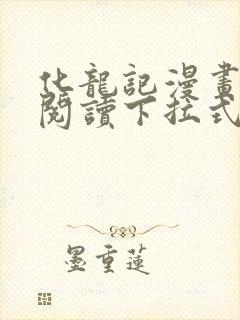 化龍記漫畫
閱讀下拉式
墨重蓮